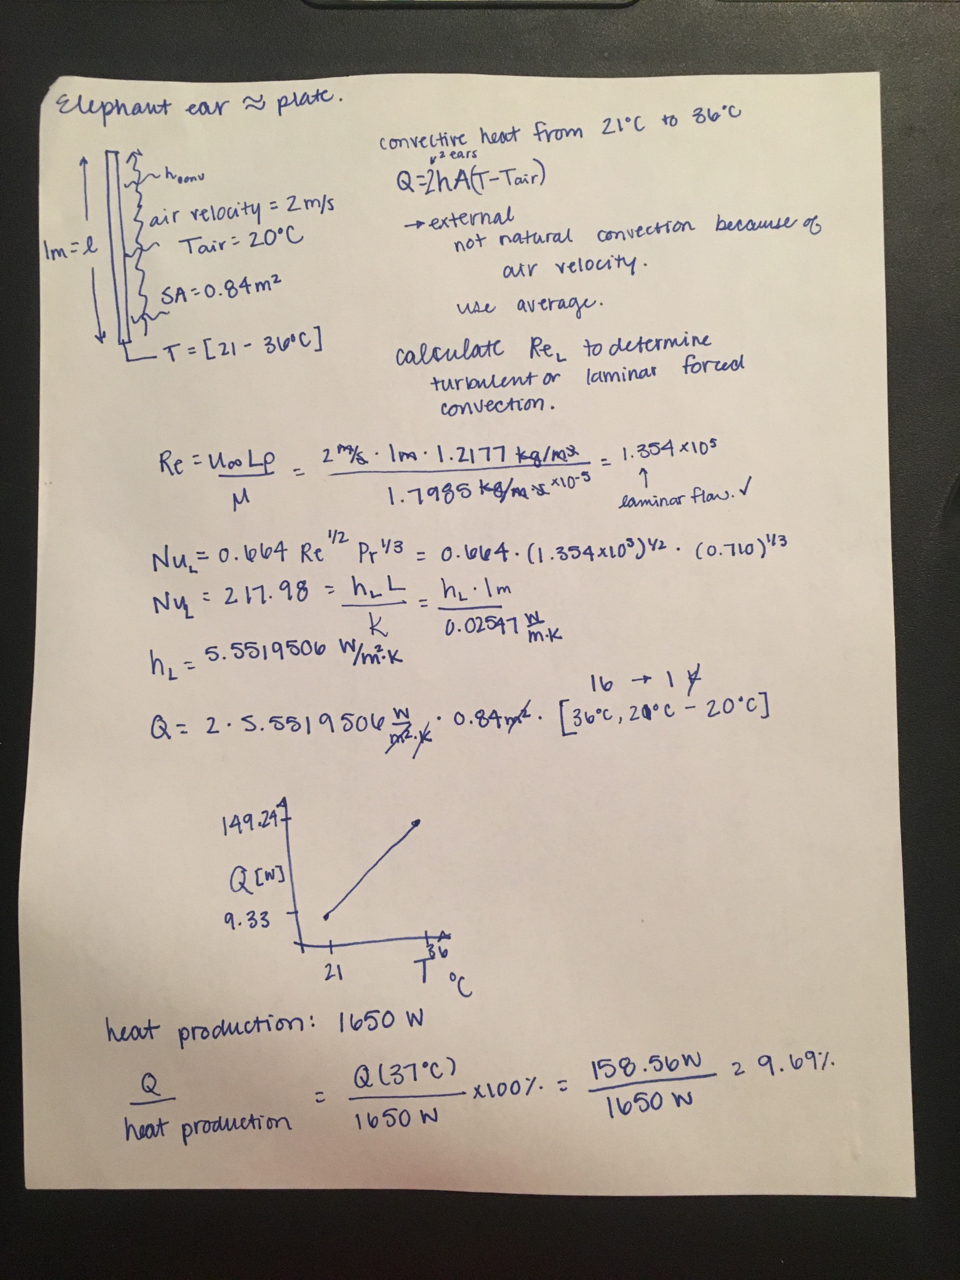 Elephant ear ≈ plate.
1m = l
hconv
air velocity = 2 m/s
Tair = 20°C
SA = 0.84 m²
T = [21 - 36°C]
convective heat from 21°C to 36°C
2 ears
Q = 2hA(T-Tair)
→ external
not natural convection because of
air velocity.
use average.
calculate Re_L to determine
turbulent or laminar forced
convection.
Re = u∞Lρ/μ = 2 m/s · 1m · 1.2177 kg/m³ / 1.7985 kg/m·s ×10⁻⁵ = 1.354 ×10⁵
↑
laminar flow. ✓
Nu_L = 0.664 Re^1/2 Pr^1/3 = 0.664 · (1.354×10⁵)^1/2 · (0.710)^1/3
Nu_L = 217.98 = h_L L/k = h_L · 1m / 0.02547 W/m·K
h_L = 5.5519506 W/m²·K
16 → 1
Q = 2 · 5.5519506 W/m²·K · 0.84m² · [36°C, 21°C - 20°C]
149.24
Q [W]
9.33
21
36
T °C
heat production: 1650 W
Q / heat production = Q(37°C) / 1650 W ×100% = 158.56W / 1650 W = 9.69%